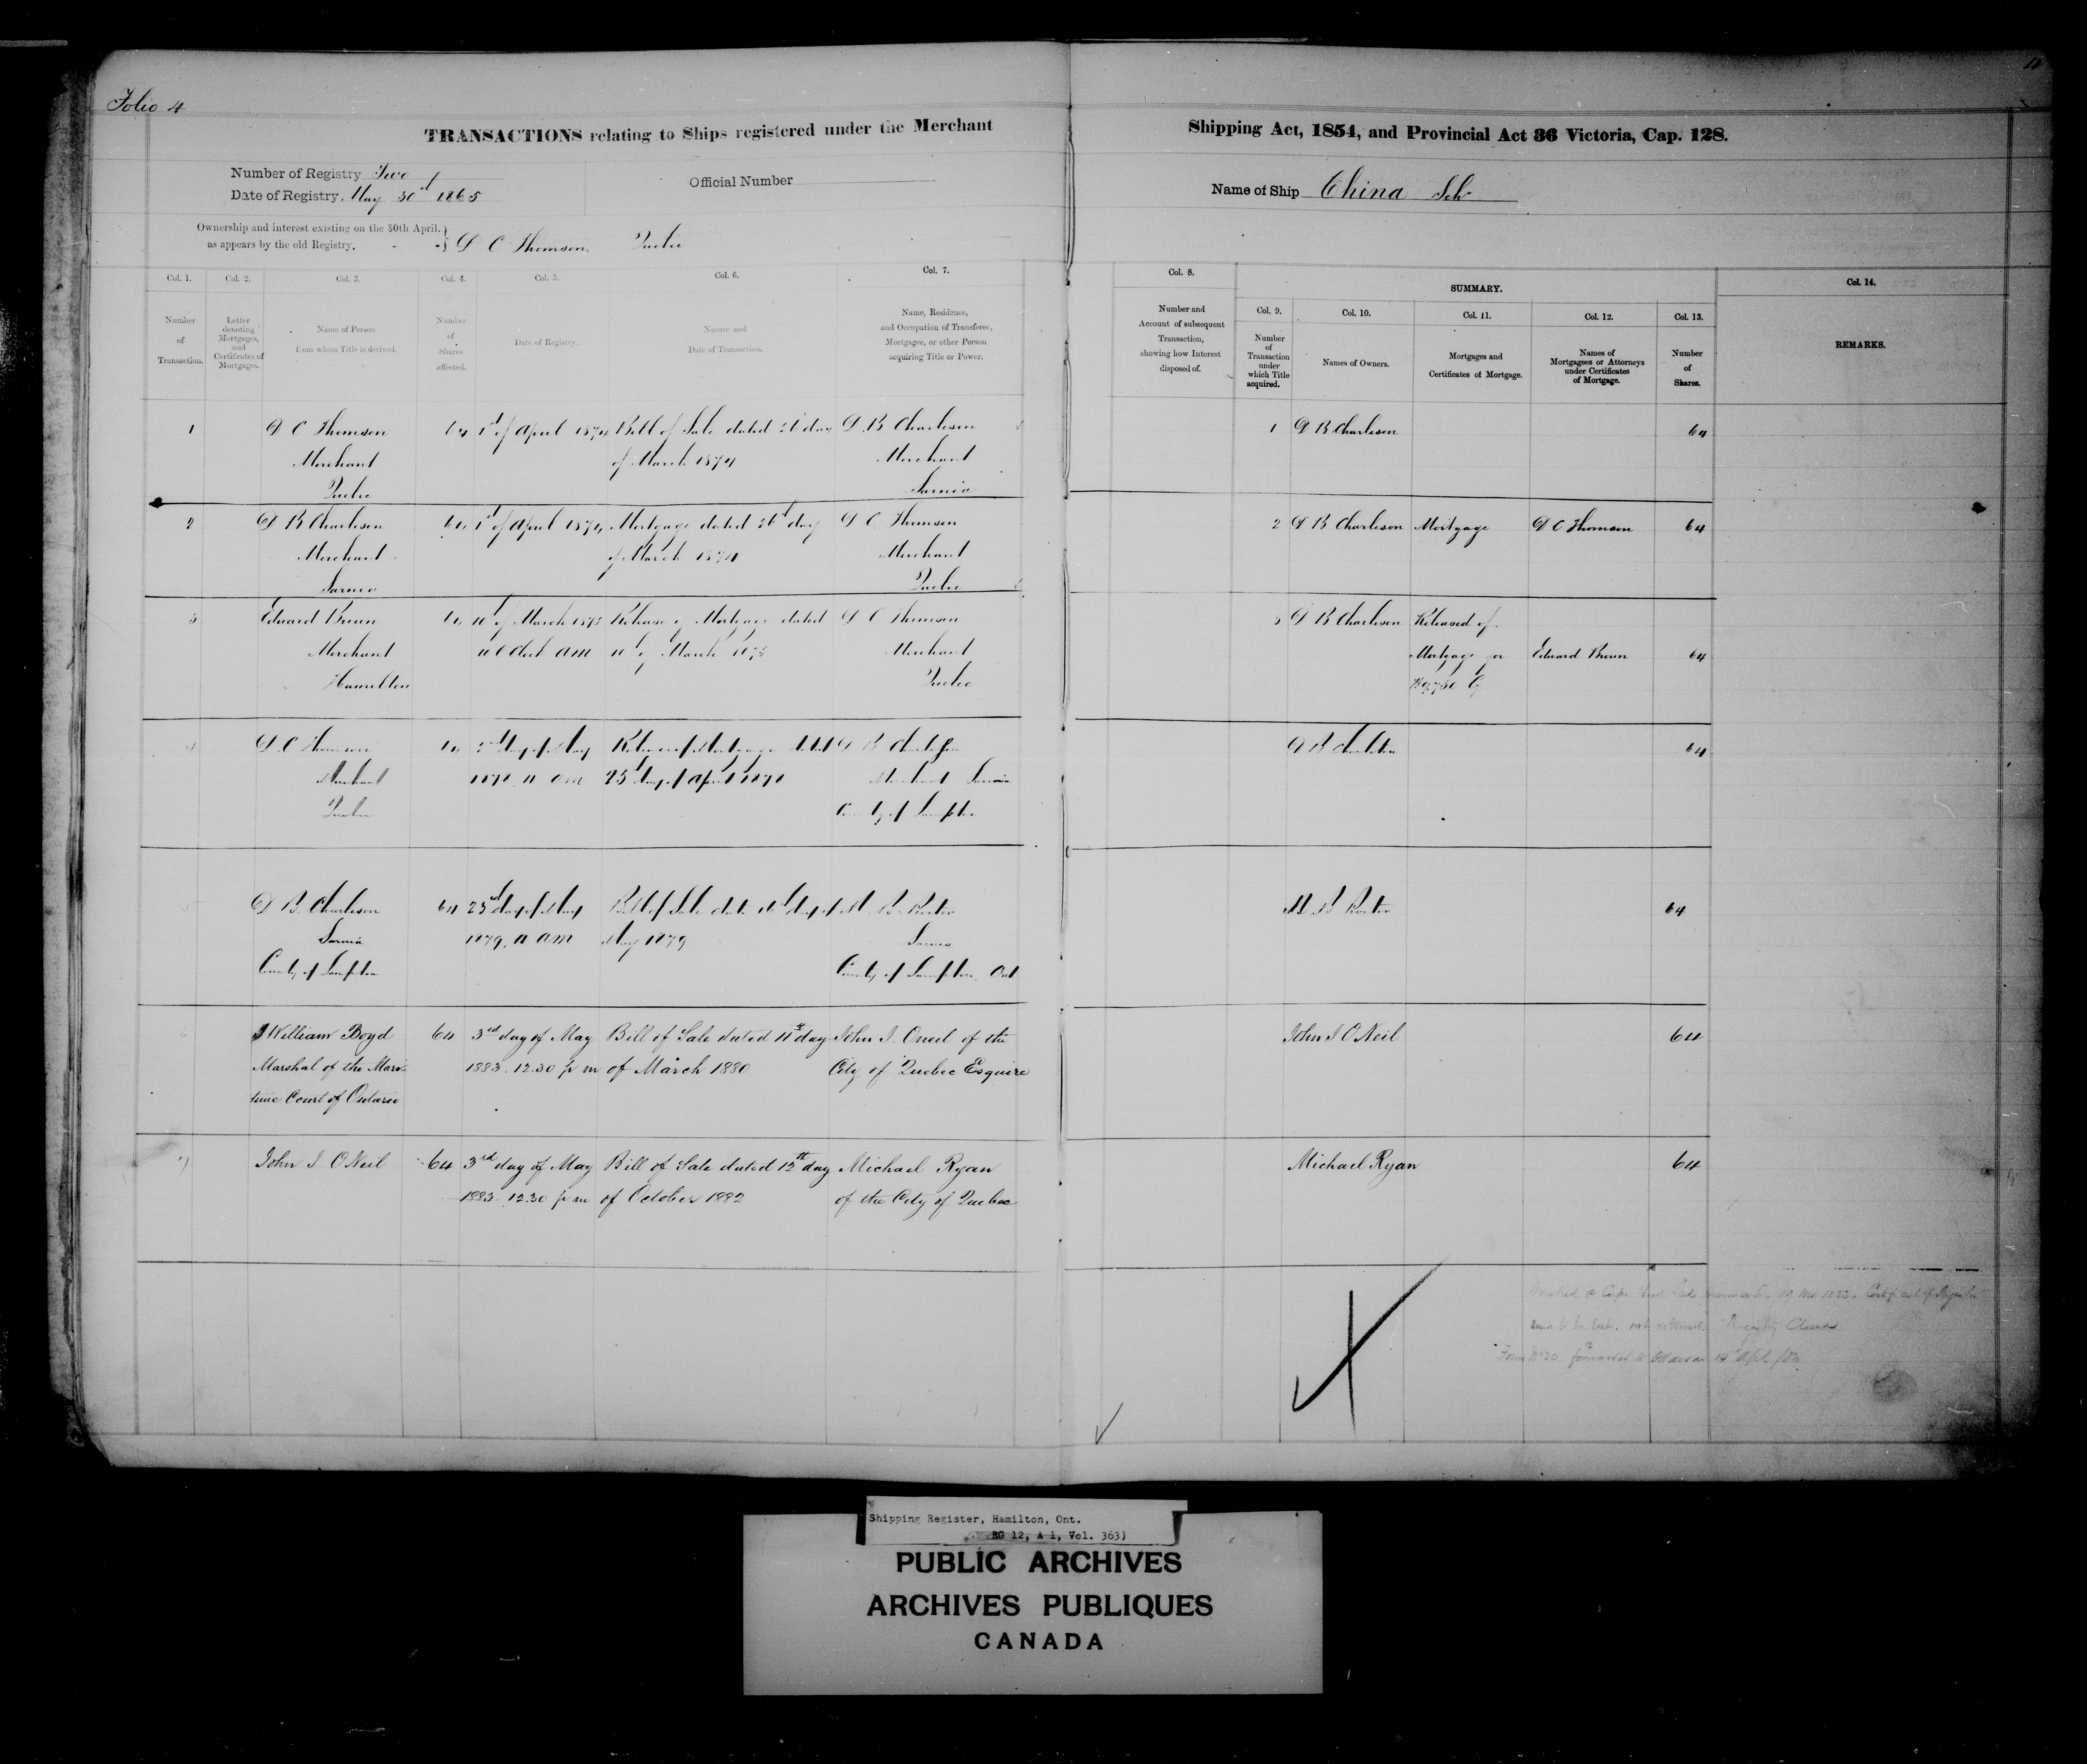 Folio 4
TRANSACTIONS relating to Ships registered under the Merchant
Shipping Act, 1854, and Provincial Act 36 Victoria, Cap. 128.
Number of Registry Two
Date of Registry. May 30th 1865
Official Number
Name of Ship China Sch
Ownership and interest existing on the 30th April.
as appears by the old Registry. D C Thomson. Quebec
Col. 1. Col. 2. Col. 3. Col. 4. Col. 5. Col. 6. Col. 7.
Number of Transaction.
Letter denoting Mortgages, and Certificates of Mortgages.
Name of Person from whom Title is derived.
Number of Shares affected.
Date of Registry.
Nature and Date of Transaction.
Name, Residence, and Occupation of Transferee, Mortgagee, or other Person acquiring Title or Power.
Col. 8.
Number and Account of subsequent Transaction, showing how Interest disposed of.
SUMMARY.
Col. 9. Col. 10. Col. 11. Col. 12. Col. 13. Col. 14.
Number of Transaction under which Title acquired.
Names of Owners.
Mortgages and Certificates of Mortgage.
Names of Mortgagees or Attorneys under Certificates of Mortgage.
Number of Shares.
REMARKS.
1 D C Thomson 64 1st of April 1874 Bill of Sale dated 26 day D. B Charleson 1 D B Charleson 64
Merchant of March 1874 Merchant
Quebec Sarnia
2 D B Charleson 64 1st of April 1874 Mortgage dated 26 day D C Thomson 2 D B Charleson Mortgage D C Thomson 64
Merchant of March 1874 Merchant
Sarnia Quebec
3 Edward Brown 64 of March Release of Mortgage dated D C Thomson 3 D B Charleson Released of
Merchant am of March Merchant Mortgage for Edward Brown 64
Hamilton Quebec
4 D. C Thomson 64 day of May Release of Mortgage dated D B Charleson D B Charleson 64
Merchant 1878 11 am 25 day of April 1878 Merchant Sarnia
Quebec County of Lampton
5 D B. Charleson 64 23rd day of May Bill of Sale date day of 64
Sarnia 1879. 11 am May 1879 Sarnia
County of Lampton County of Lampton. Ont
6 William Boyd 64 3rd day of May Bill of Sale dated 11th day John I. Oneil of the John I O'Neil 64
Marshal of the Mari- 1883. 12.30 p m of March 1880 City of Quebec Esquire
time Court of Ontario
7 John I O'Neil 64 3rd day of May Bill of Sale dated 12th day Michael Ryan Michael Ryan 64
1883. 12.30 p m of October 1882 of the City of Quebec
Registry Closed
forwarded to Ottawa 14 Apl
Shipping Register, Hamilton, Ont.
RG 12, A 1, Vol. 363)
PUBLIC ARCHIVES
ARCHIVES PUBLIQUES
CANADA